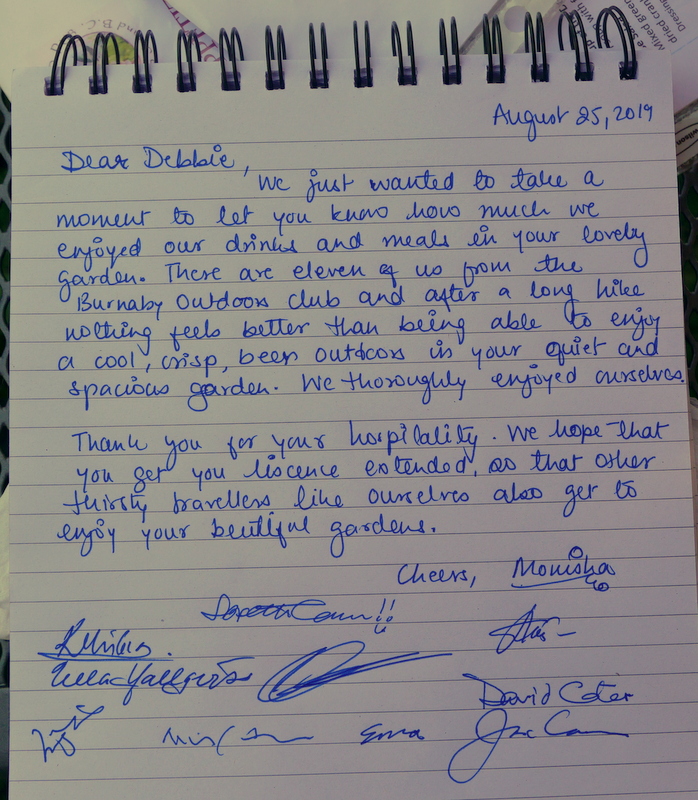 August 25, 2019
Dear Debbie,
We just wanted to take a
moment to let you know how much we
enjoyed our drinks and meals in your lovely
garden. There are eleven of us from the
Burnaby Outdoors club and after a long hike
nothing feels better than being able to enjoy
a cool, crisp, beer outdoors in your quiet and
spacious garden. We thoroughly enjoyed ourselves.
Thank you for your hospitality. We hope that
you get you liscence extended, so that other
thirsty travellers like ourselves also get to
enjoy your beutiful gardens.
Cheers, Monisha
David Coter
Emma